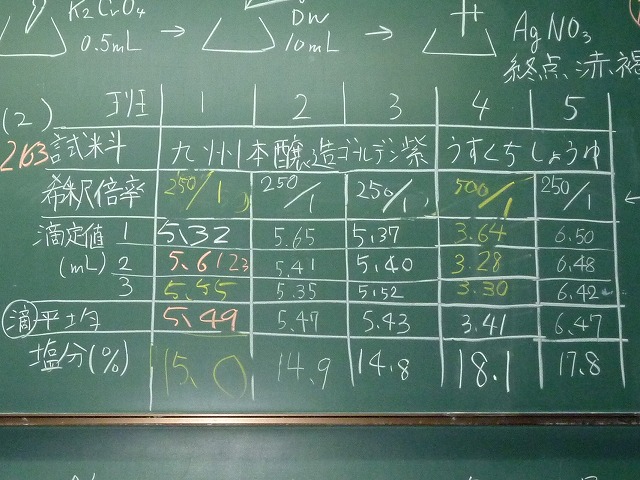 K₂CrO₄ DW AgNO₃
0.5mL → 10mL → 終点、赤褐
(2) 班 1 2 3 4 5
263 試料 九州 本醸造 ゴールデン紫 うすくちしょうゆ
希釈倍率 250/1 250/1 250/1 500/1 250/1
滴定値 1 5.32 5.65 5.37 3.64 6.50
(mL) 2 5.6123 5.41 5.40 3.28 6.48
3 5.55 5.35 5.52 3.30 6.42
滴平均 5.49 5.47 5.43 3.41 6.47
塩分(%) 15.0 14.9 14.8 18.1 17.8